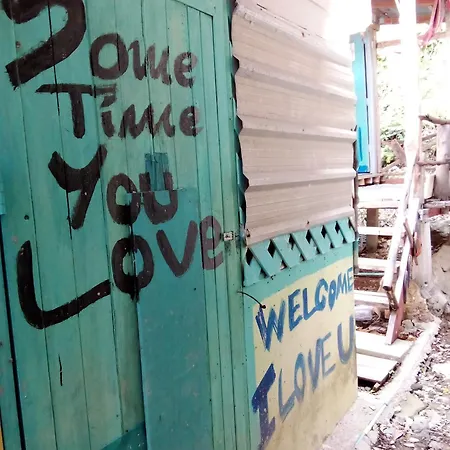 Some
Time
You
Love
WELCOME
I LOVE U